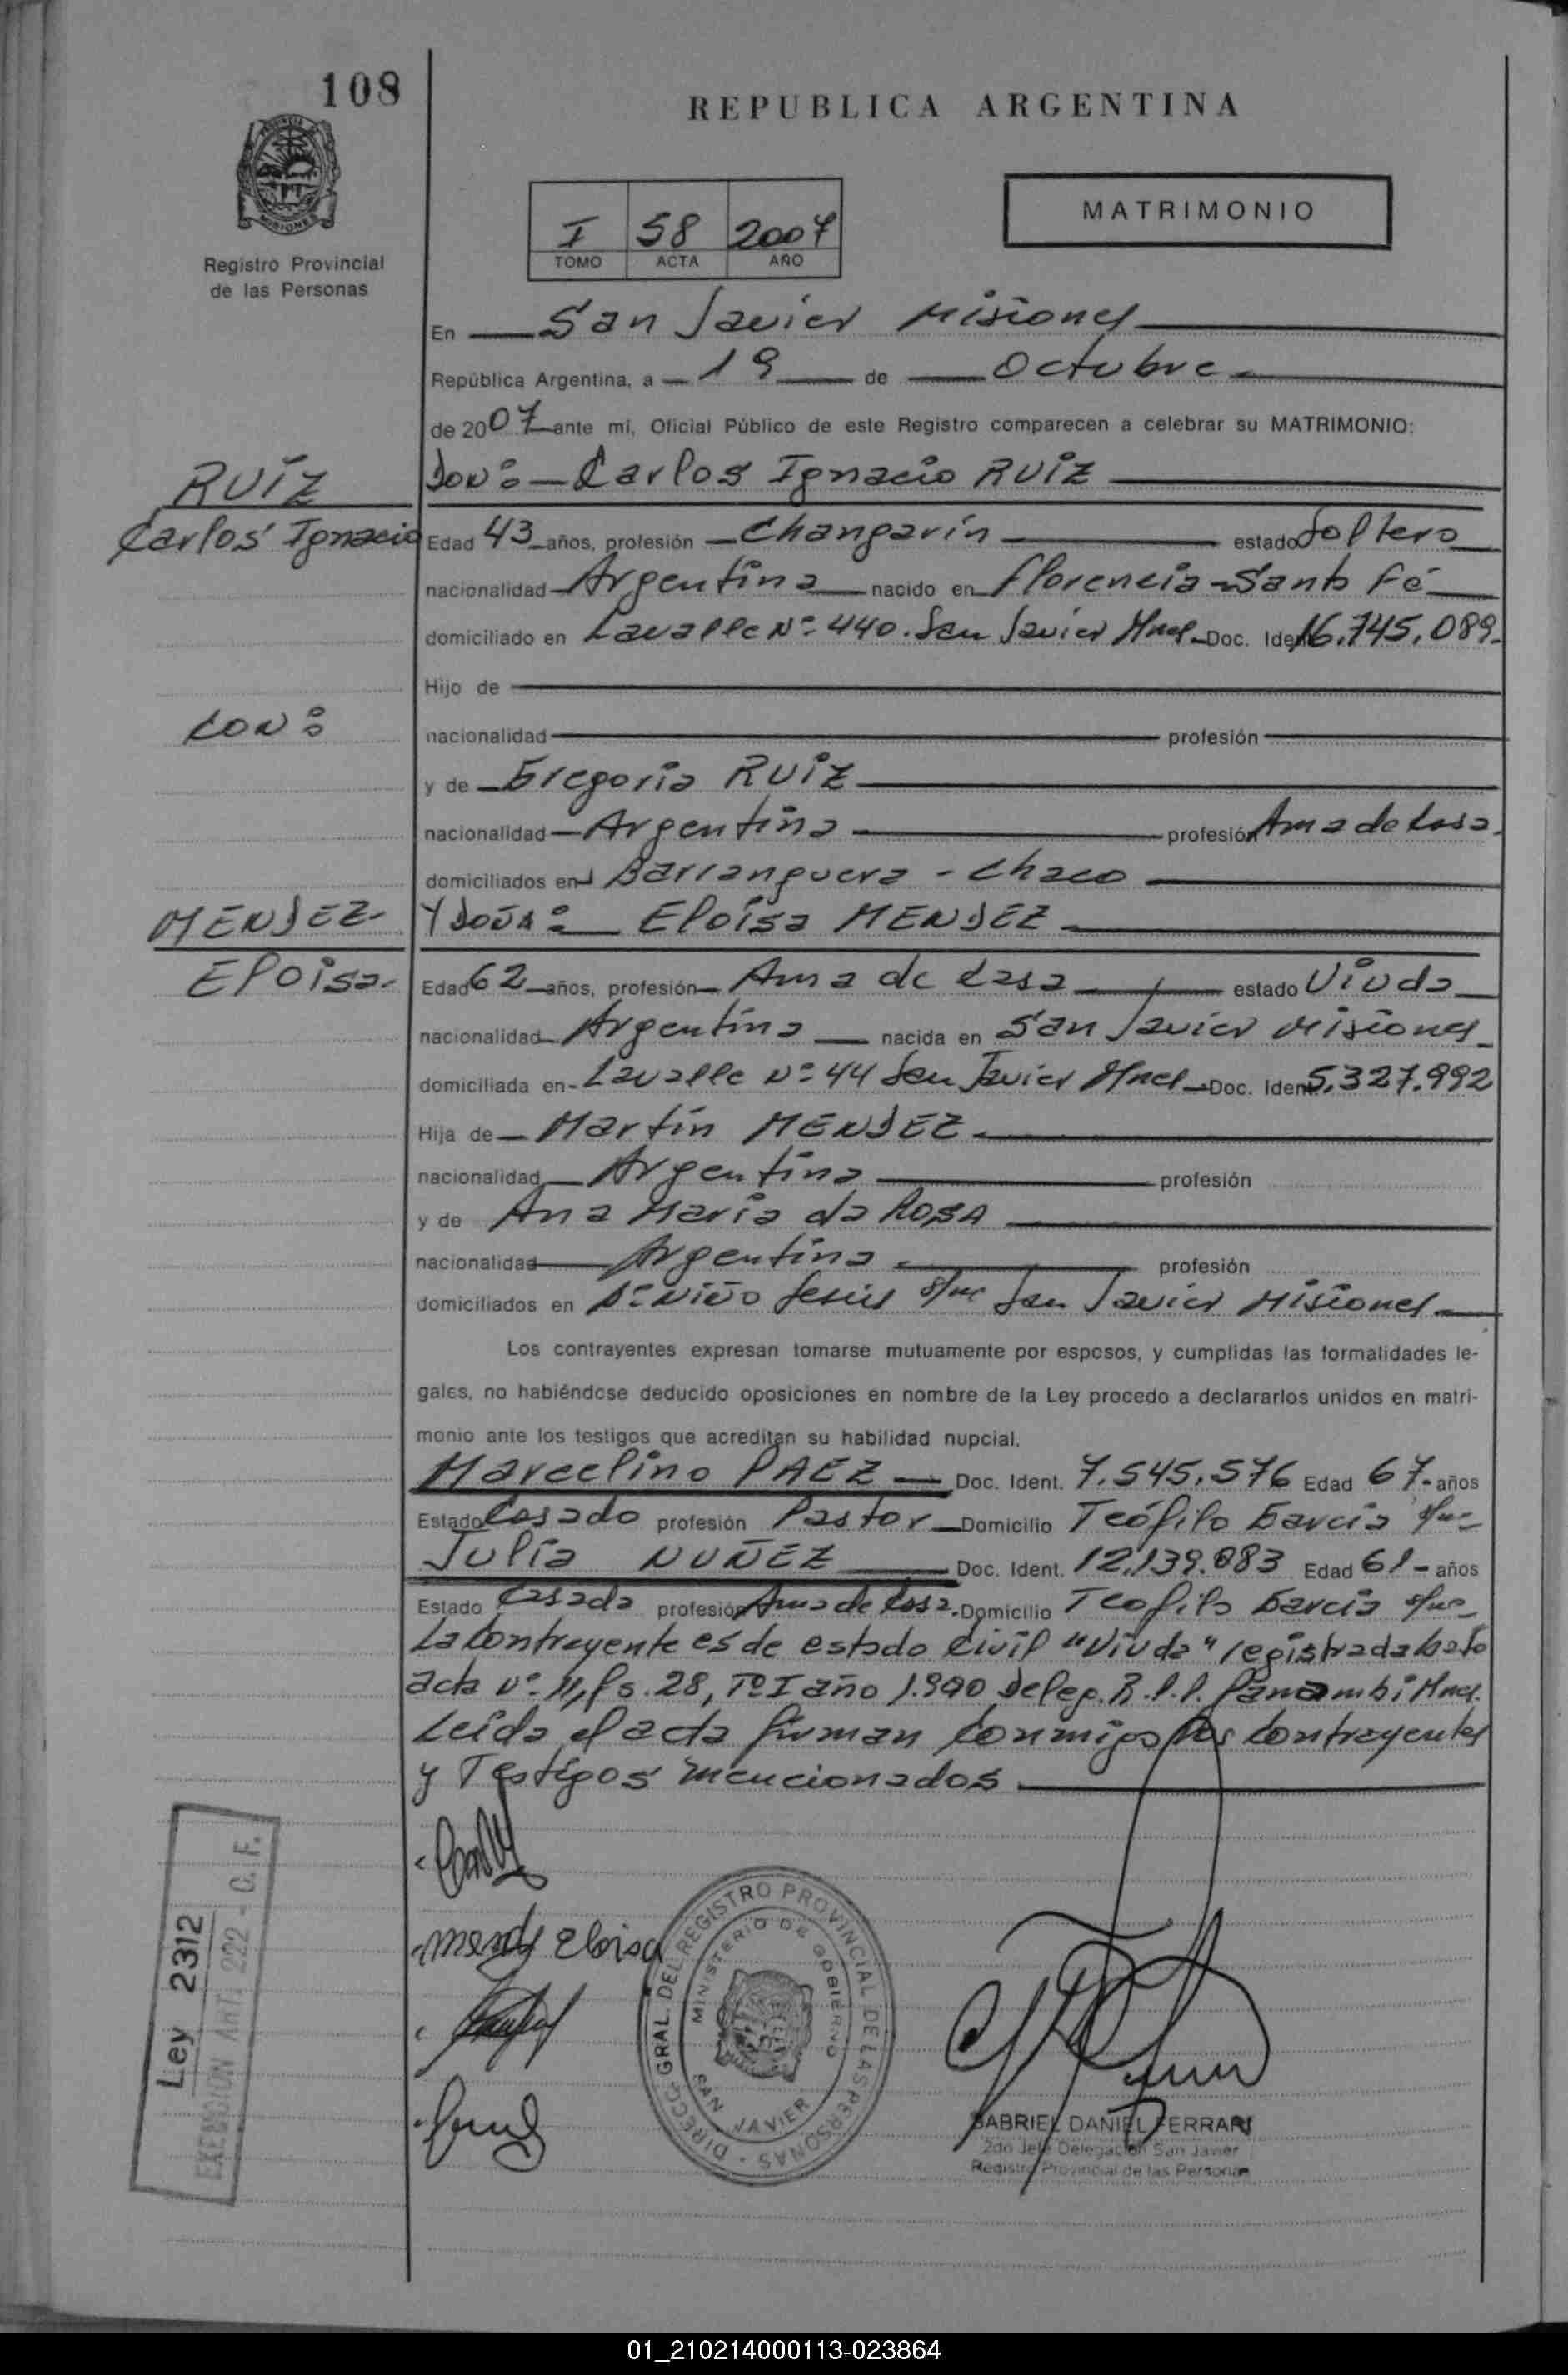 108
REPUBLICA ARGENTINA
PROVINCIA DE
MISIONES
Registro Provincial
de las Personas
I 58 2007
TOMO ACTA AÑO
MATRIMONIO
En San Javier Misiones
República Argentina, a 19 de Octubre
de 2007 ante mí, Oficial Público de este Registro comparecen a celebrar su MATRIMONIO:
RUIZ
DON: Carlos Ignacio RUIZ
Carlos Ignacio
Edad 43 años, profesión Changarín estado Soltero
nacionalidad Argentina nacido en Florencia - Santa Fé
domiciliado en Lavalle Nº 440. San Javier Mnes Doc. Ident. 16.745.089
Hijo de
CON:
nacionalidad profesión
y de Gregoria RUIZ
nacionalidad Argentina profesión Ama de Casa
domiciliados en Barranquera - Chaco
MENDEZ
Y DOÑA: Eloisa MENDEZ
Eloisa
Edad 62 años, profesión Ama de Casa estado Viuda
nacionalidad Argentina nacida en San Javier Misiones
domiciliada en Lavalle Nº 44 San Javier Mnes Doc. Ident. 5.327.992
Hija de Martín MENDEZ
nacionalidad Argentina profesión
y de Ana María da ROSA
nacionalidad Argentina profesión
domiciliados en Bº Niño Jesús s/nº San Javier Misiones
Los contrayentes expresan tomarse mutuamente por esposos, y cumplidas las formalidades le-
gales, no habiéndose deducido oposiciones en nombre de la Ley procedo a declararlos unidos en matri-
monio ante los testigos que acreditan su habilidad nupcial.
Marcelino PAEZ Doc. Ident. 7.545.576 Edad 67 años
Estado Casado profesión Pastor Domicilio Teófilo García s/nº
Julia NUÑEZ Doc. Ident. 12.139.083 Edad 61 años
Estado Casada profesión Ama de Casa. Domicilio Teofilo García s/nº
La Contrayente es de estado Civil "Viuda" registrada bajo
acta nº 11, fs. 28, Tº I año 1.990 Deleg. R.P.P. Panambí Mnes.
Leída el acta firman Conmigo los Contrayentes
y Testigos mencionados
Mendez Eloisa
DIRECC. GRAL. DEL REGISTRO PROVINCIAL DE LAS PERSONAS
MINISTERIO DE GOBIERNO
SAN JAVIER
Ley 2312
EXENCION ART. 222 - C. F.
GABRIEL DANIEL FERRARI
2do Jefe Delegación San Javier
Registro Provincial de las Personas
01_210214000113-023864